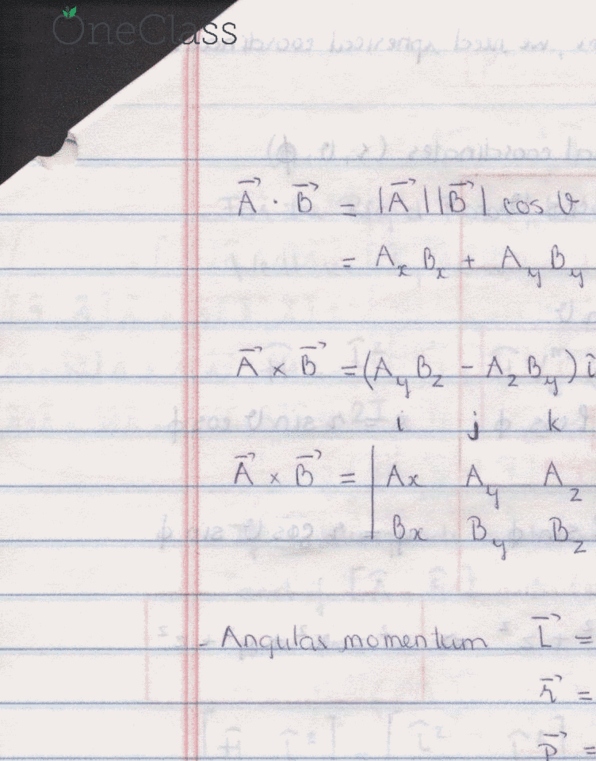 OneClass
A⃗ · B⃗ = |A⃗||B⃗| cos θ
= AₓBₓ + A_yB_y
A⃗ × B⃗ = (A_yB_z − A_zB_y) î
i j k
A⃗ × B⃗ = | Ax A_y A_z
Bx B_y B_z
- Angular momentum L⃗ =
r⃗ =
P⃗ =